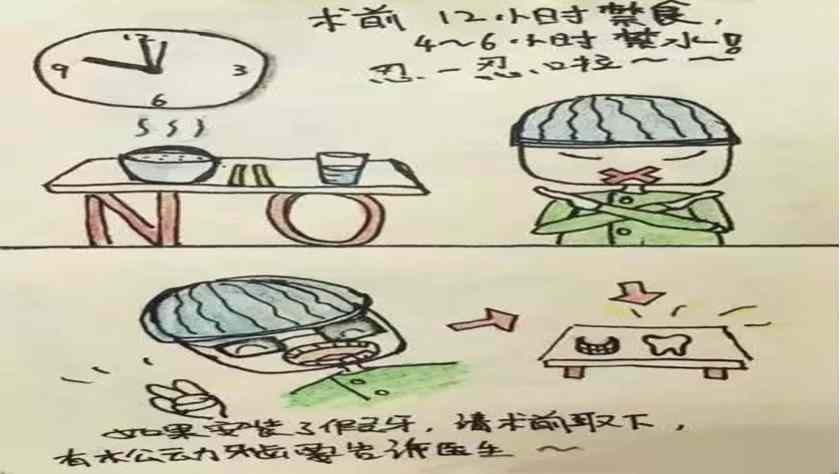 术前 12小时禁食，
4~6小时禁水！
忍一忍啦~~
12
9
3
6
NO
如果安装了假牙，请术前取下，
有松动牙齿要告诉医生~